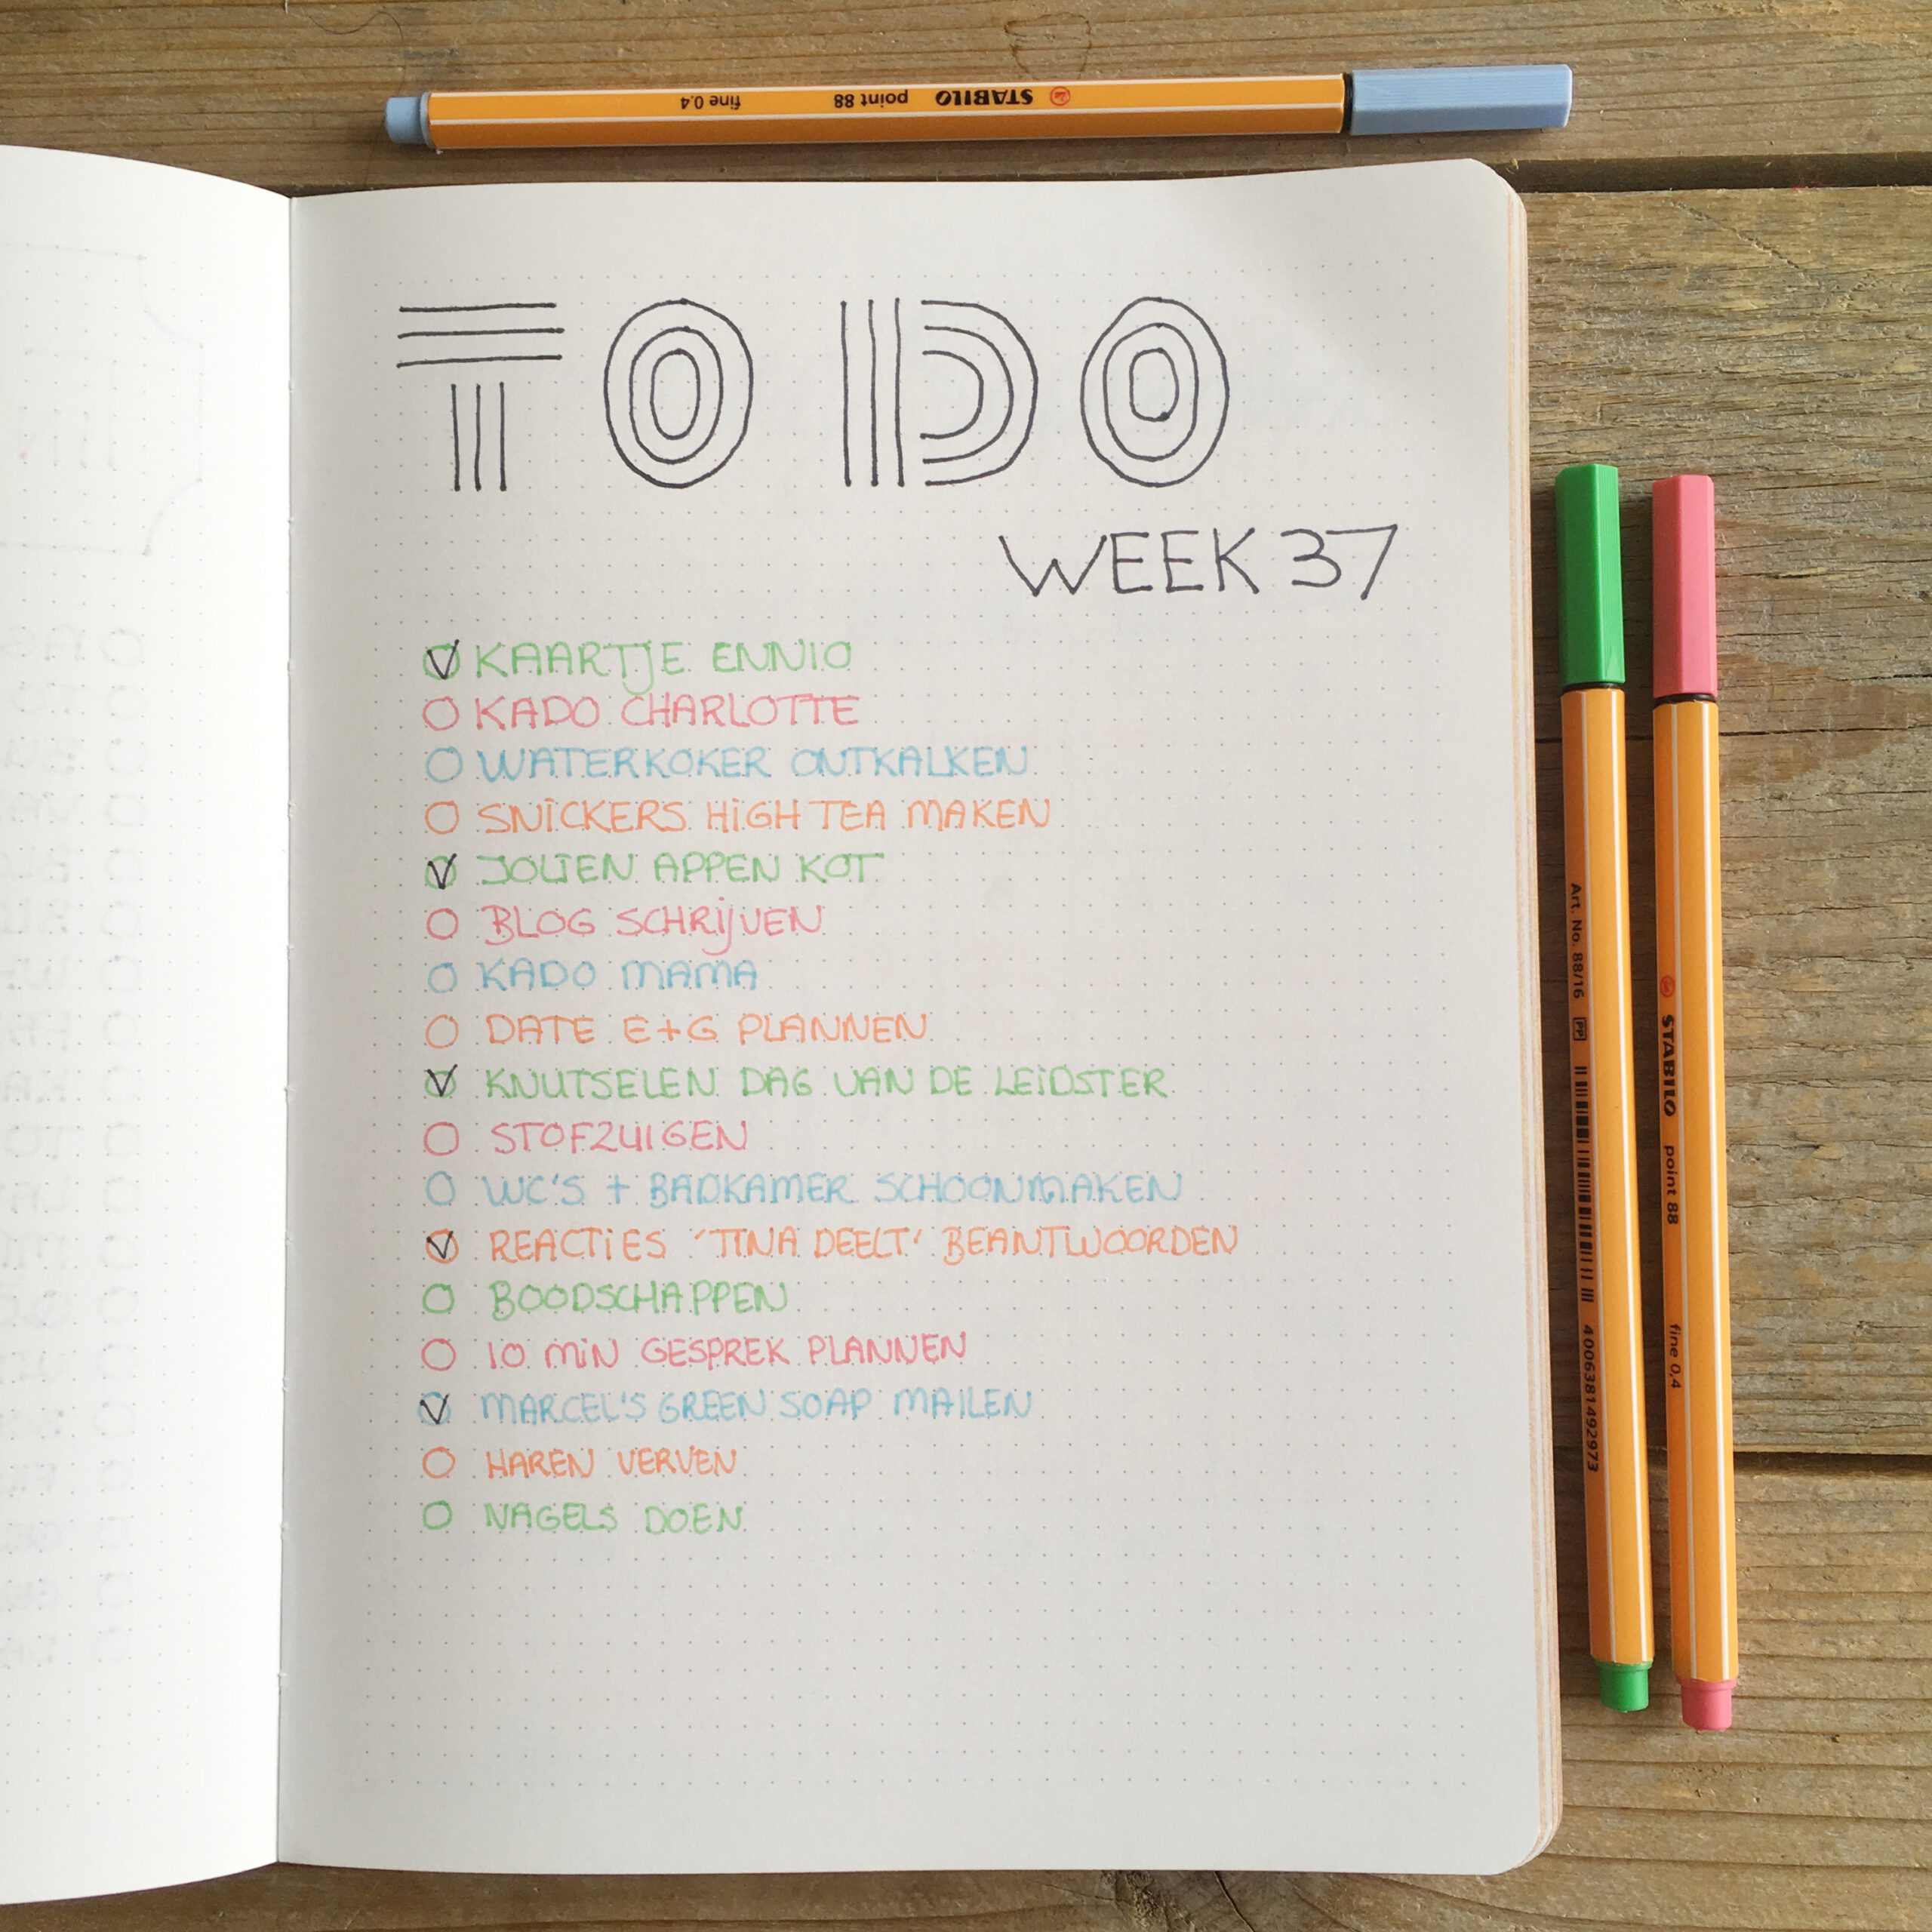 STABILO point 88 fine 0.4
TO DO
WEEK 37
KAARTJE ENNIO
KADO CHARLOTTE
WATERKOKER ONTKALKEN
SNICKERS HIGH TEA MAKEN
JOLIEN APPEN KOT
BLOG SCHRIJVEN
KADO MAMA
DATE E+G PLANNEN
KNUTSELEN DAG VAN DE LEIDSTER
STOFZUIGEN
WC'S + BADKAMER SCHOONMAKEN
REACTIES 'TINA DEELT' BEANTWOORDEN
BOODSCHAPPEN
10 MIN GESPREK PLANNEN
MARCEL'S GREEN SOAP MAILEN
HAREN VERVEN
NAGELS DOEN
Art. No. 88/16 PP 4006381492973
STABILO point 88 fine 0,4